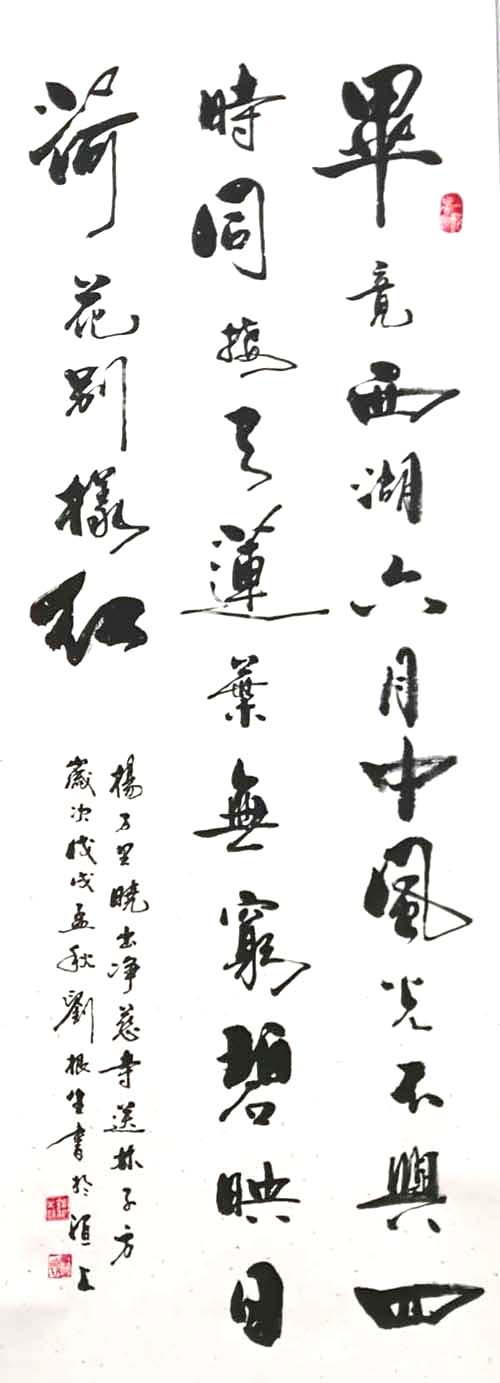 畢竟西湖六月中風光不與四
時同接天蓮葉無窮碧映日
荷花別樣紅
楊万里曉出净慈寺送林子方
歲次戊戌孟秋劉根生書於洹上